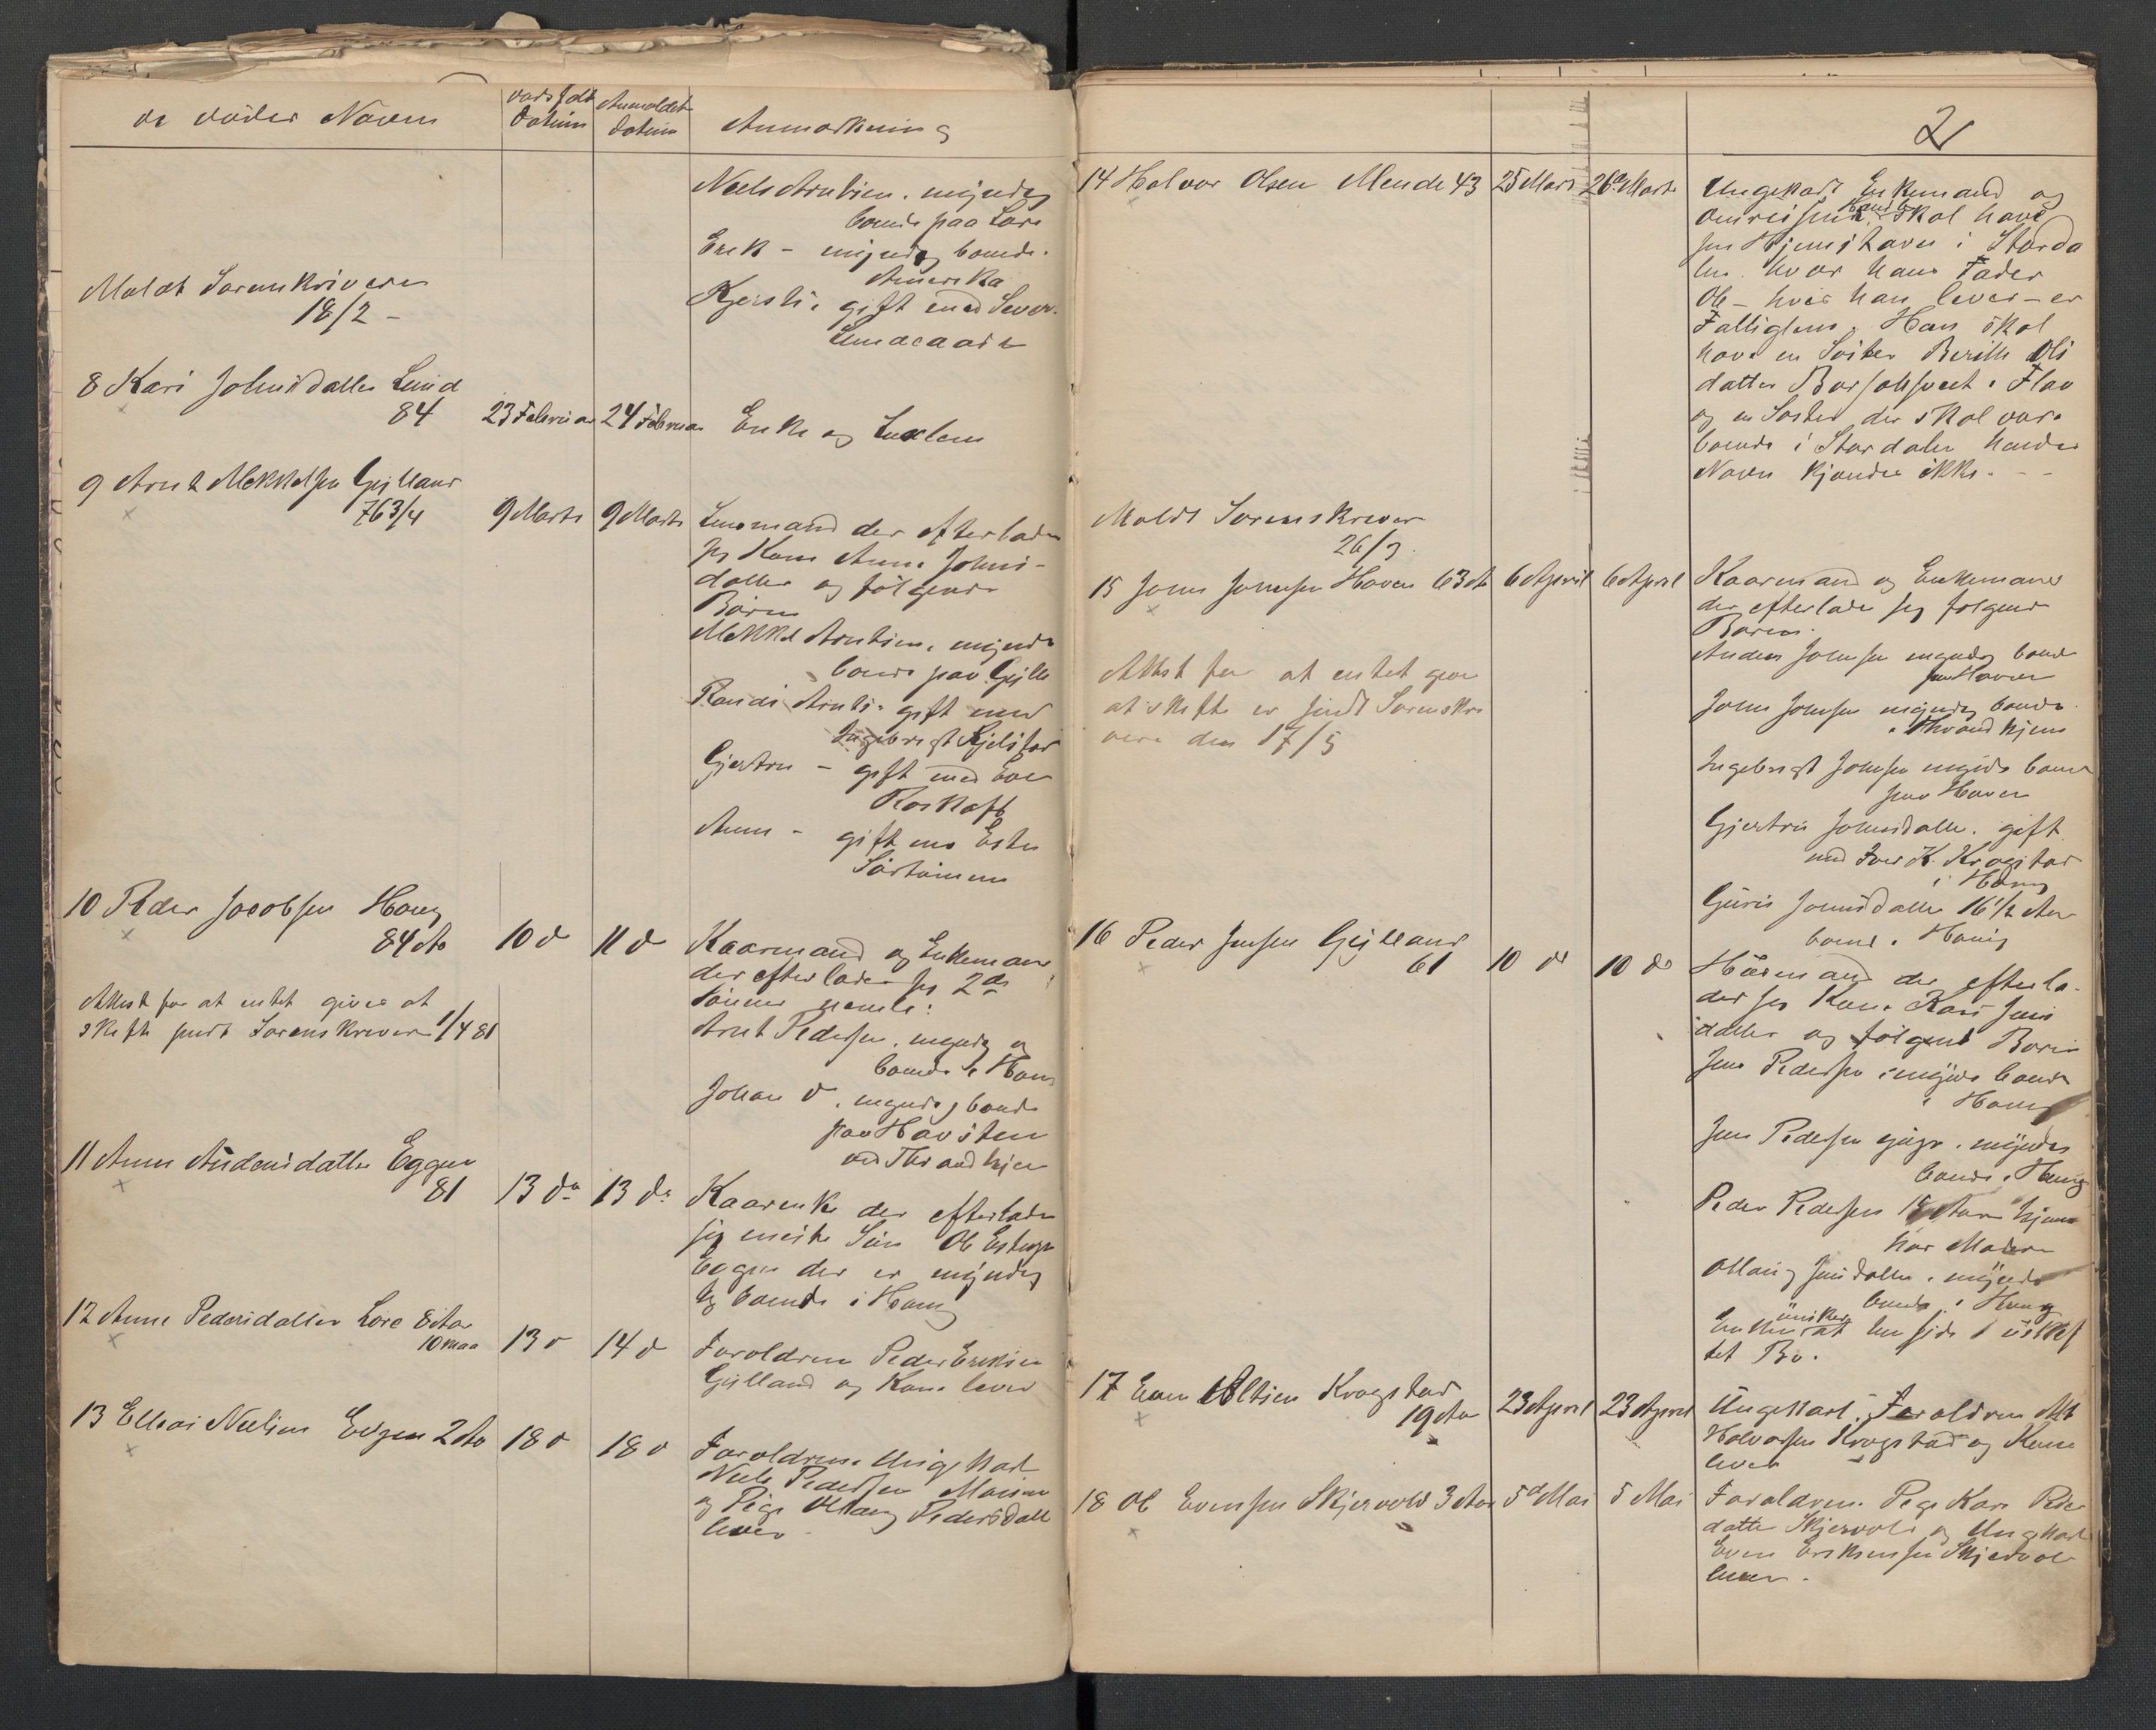 de dödes Navn
Dödsfald Datum
Anmeldet Datum
Anmærkning
Niels Arntsen, myndig
boende paa Løre
Erik – myndig boende
Amerika
Kjersti, gift med Sever
Meldt Sorenskriveren
18/2 –
8 Kari Johnsdatter Lund
84
23 Februar
24 Februar
Enke og Læxlem
9 Arnt Mekkelsen Gylland
76 3/4
9 Marts
9 Marts
Lensmand der efterlader
sig Kone Anne Johns-
datter og følgende
Børn
Mekkel Arntsen, myndig
boende paa Gylle
Randi Arnts. gift med
Ingebrigt Kjelstad
Gjertru – gift med Even
Roskaft
Anne – gift med Esten
10 Peder Jacobsen Houg
84 Ar
10 d
11 d
Kaarmand og Enkemand
der efterlader sig 2de
Sönner nemli:
Arnt Pedersen, myndig og
boende i Houg
Johan d, myndig boende
paa Havsten
ved Throndhjem
Attest for at intet giver at
skifte sendt Sorenskriveren 1/4 81
11 Anne Andersdatter Eggen
81
13 do
13 do
Kaarenke der efterlader
sig eneste Sön Ole Estensen
Eggen der er myndig
og boende i Houg
12 Anne Pedersdatter Løre 8 Aar
10 maa
13 d
14 d
Foreldrene Peder Eriksen
Gylland og Kone lever
13 Ellrai Nielsen Evjen 2 Ar
18 d
18 d
Foreldrene Ungekarl
Niels Pedersen Moeian
og Pige Ollaug Pedersdatt
lever
2
14 Halvor Olsen Mende 43
25 Marts
26 Marts
Ungekarl Enkemand og
omreisende Handle skal have
sin Hjemstavn i Størda
len. hvor hans Fader
Ole – hvis han lever – er
Fattiglem. Han skal
have en Søster Berith Ols
datter Borsetsvedt i Flaa
og en Søster der skal være
boende i Størdalen hendes
Navn kjendes ikke. –
Meldt Sorenskriver
26/3
15 John Johnsen Hoven 63 Ar
6 April
6 April
Kaarmand og Enkemand
der efterlader sig følgende
Børn.
Anders Johnsen myndig boende
paa Hoven
John Johnsen myndig boende
i Throndhjem
Ingebrigt Johnsen myndig boende
paa Hoven
Gjertru Johnsdatter. gift
med Iver K. Krogstad
i Houg
Guri Johnsdatter 16 1/2 Aar
boend. i Houg
Attest for at intet giver
at skifte er sendt Sorenskri
veren den 17/5
16 Peder Jensen Gylland
61
10 do
10 do
Huusmand der efterla-
der sig Kone Kari Jens
datter og følgende Børn
Jens Pedersen myndig boende
i Houg
Jens Pedersen yngr. myndig
boende i Houg
Peder Pedersen 15 Aar hjemme
hos Moderen
Ollaug Jensdatter. myndig
boende i Houg
Enken ønsker at hensidde i uskif
tet Bo.
17 Even Oltsen Krogstad
19 Ar
23 April
23 April
Ungekarl. Foreldrene
Halvorsen Krogstad og Kone
lever
18 Ole Evensen Skjervold 3 Aar
5 Mai
5 Mai
Foreldrene. Pige Kari Peder
datter Skjervold og Ungekarl
Even Eriksensen Skjervold
lever.